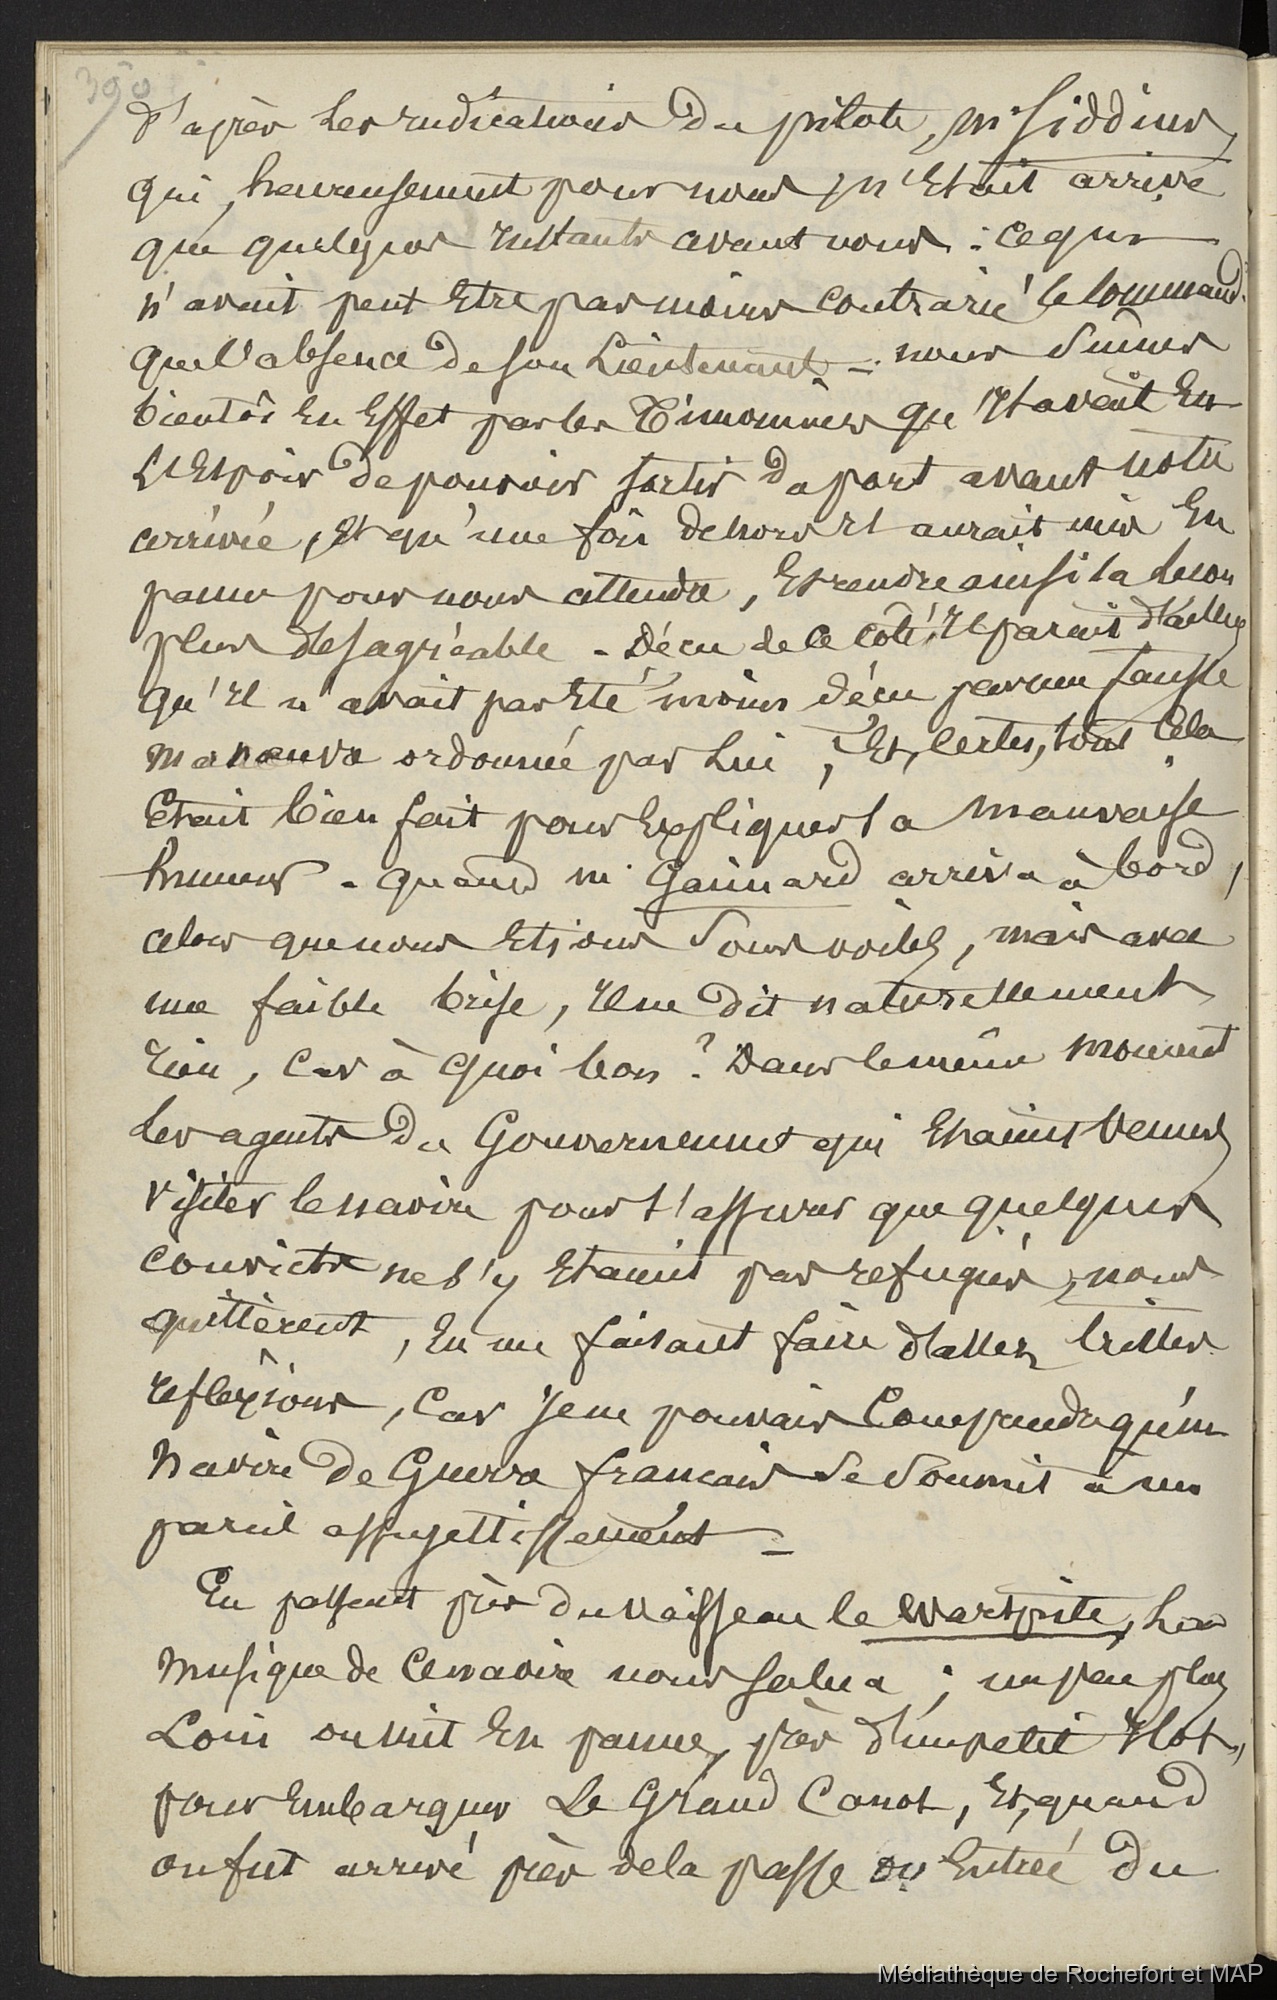 390
d'après les indications du pilote, mr Siddins,
qui, heureusement pour nous, n'était arrivé
que quelques instants avant nous : ce qui
n'avait peut être pas moins contrarié le Command.
que l'absence de son Lieutenant _. nous sumes
bientôt en effet par les timoniers qu'il avait eu
l'Espoir de pouvoir sortir du port avant notre
arrivée, et qu'une fois dehors il aurait mis en
panne pour nous attendre, et rendre ainsi la leçon
plus desagréable. Décu de ce coté, il parait d'ailleurs
qu'il n'avait pas été moins décu par une fausse
manœuvre ordonnée par lui ; et, certes, tout cela
était bien fait pour expliquer la mauvaise
humeur. quand mr Gaimard arriva à bord,
alors que nous étions sous voiles, mais avec
une faible brise, il ne dit naturellement
rien, car à quoi bon ? Dans le même moment
les agents du Gouvernement qui étaient venus
visiter le navire pour s'assurer que quelques
convicts ne s'y étaient pas refugiés, nous
quittèrent, en me faisant faire d'assez tristes
reflexions, car je ne pouvais comprendre qu'un
navire de Guerre francais se soumit à un
pareil assujettissement _
En passant près du vaisseau le Warspite, la
musique de ce navire nous salua ; un peu plus
Loin on mit en panne, près d'un petit ilot,
pour embarquer le Grand Canot, et, quand
on fut arrivé près de la passe ou entrée du
Médiathèque de Rochefort et MAP